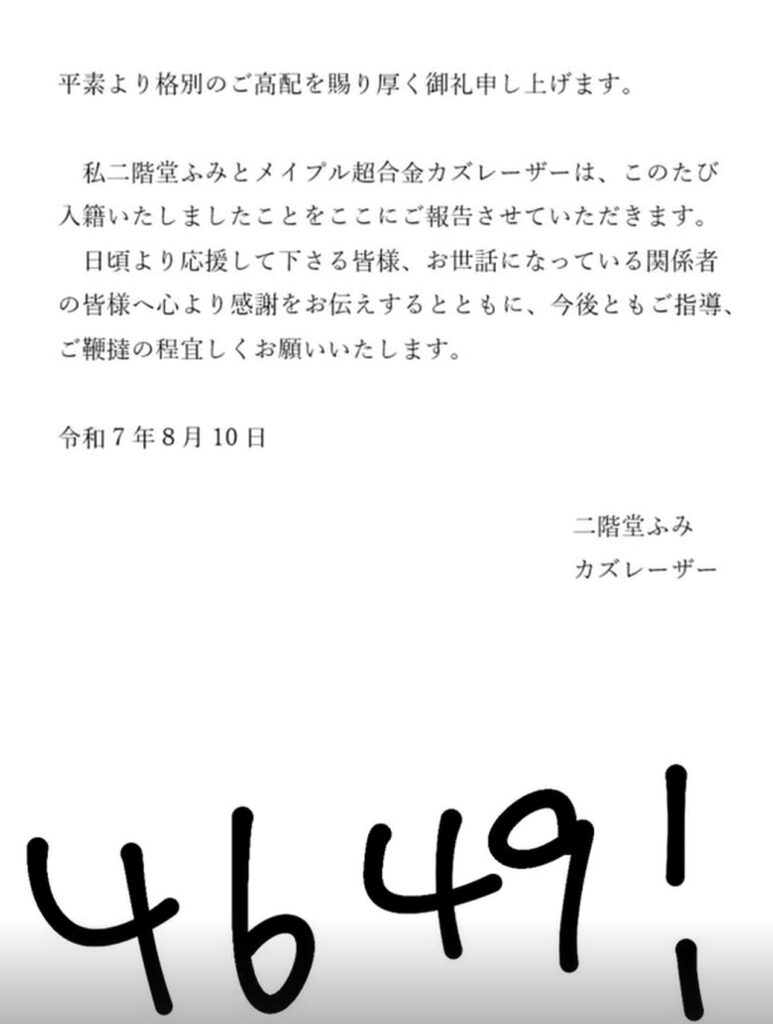 平素より格別のご高配を賜り厚く御礼申し上げます。
私二階堂ふみとメイプル超合金カズレーザーは、このたび
入籍いたしましたことをここにご報告させていただきます。
日頃より応援して下さる皆様、お世話になっている関係者
の皆様へ心より感謝をお伝えするとともに、今後ともご指導、
ご鞭撻の程宜しくお願いいたします。
令和7年8月10日
二階堂ふみ
カズレーザー
4649!